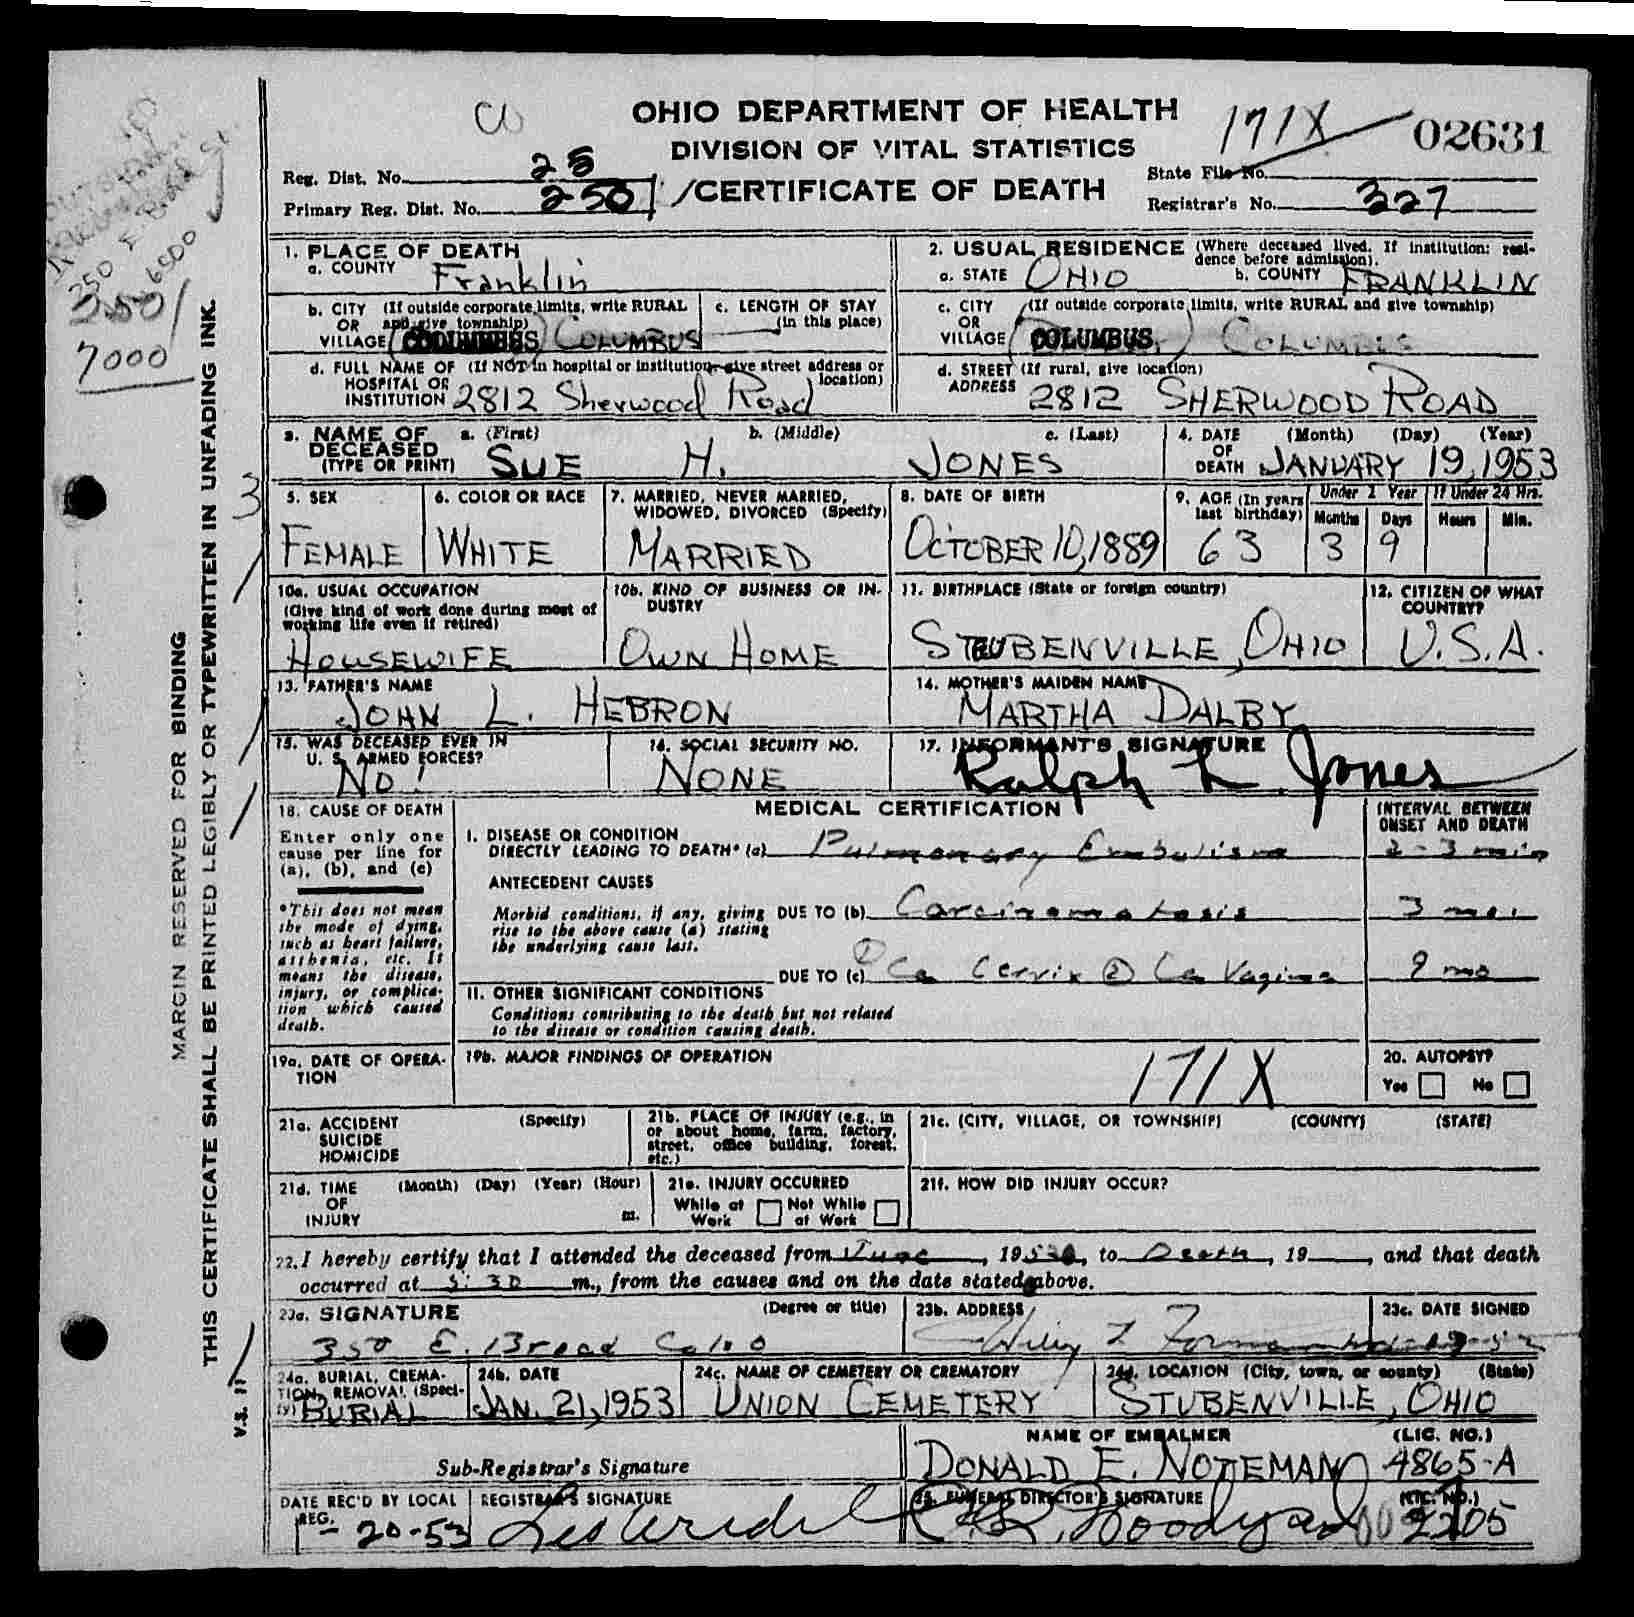 OHIO DEPARTMENT OF HEALTH
DIVISION OF VITAL STATISTICS
CERTIFICATE OF DEATH
171X
02631
Reg. Dist. No. 25
Primary Reg. Dist. No. 2501
State File No.
Registrar's No. 327
250 E. Broad St.
6500
2501
7000
MARGIN RESERVED FOR BINDING
THIS CERTIFICATE SHALL BE PRINTED LEGIBLY OR TYPEWRITTEN IN UNFADING INK.
V.S. 11
3
1. PLACE OF DEATH
a. COUNTY Franklin
2. USUAL RESIDENCE (Where deceased lived. If institution: residence before admission).
a. STATE OHIO b. COUNTY FRANKLIN
b. CITY (If outside corporate limits, write RURAL
OR and give township)
VILLAGE COLUMBUS
c. LENGTH OF STAY
(in this place)
c. CITY (If outside corporate limits, write RURAL and give township)
OR
VILLAGE (COLUMBUS) COLUMBUS
d. FULL NAME OF (If NOT in hospital or institution, give street address or location)
HOSPITAL OR
INSTITUTION 2812 Sherwood Road
d. STREET (If rural, give location)
ADDRESS 2812 SHERWOOD ROAD
3. NAME OF DECEASED (TYPE OR PRINT)
a. (First) b. (Middle) c. (Last)
SUE H. JONES
4. DATE OF DEATH (Month) (Day) (Year)
JANUARY 19, 1953
5. SEX
FEMALE
6. COLOR OR RACE
WHITE
7. MARRIED, NEVER MARRIED, WIDOWED, DIVORCED (Specify)
MARRIED
8. DATE OF BIRTH
OCTOBER 10, 1889
9. AGE (In years last birthday)
63
Under 1 Year
Months Days
3 9
If Under 24 Hrs.
Hours Min.
10a. USUAL OCCUPATION
(Give kind of work done during most of working life even if retired)
HOUSEWIFE
10b. KIND OF BUSINESS OR INDUSTRY
OWN HOME
11. BIRTHPLACE (State or foreign country)
STEUBENVILLE, OHIO
12. CITIZEN OF WHAT COUNTRY?
U.S.A.
13. FATHER'S NAME
JOHN L. HEBRON
14. MOTHER'S MAIDEN NAME
MARTHA DALBY
15. WAS DECEASED EVER IN U. S. ARMED FORCES?
NO!
16. SOCIAL SECURITY NO.
NONE
17. INFORMANT'S SIGNATURE
Ralph L. Jones
18. CAUSE OF DEATH
Enter only one cause per line for (a), (b), and (c)
*This does not mean the mode of dying, such as heart failure, asthenia, etc. It means the disease, injury, or complication which caused death.
MEDICAL CERTIFICATION
INTERVAL BETWEEN ONSET AND DEATH
I. DISEASE OR CONDITION
DIRECTLY LEADING TO DEATH* (a) Pulmonary Embolism 2-3 min
ANTECEDENT CAUSES
Morbid conditions, if any, giving rise to the above cause (a) stating the underlying cause last.
DUE TO (b) Carcinomatosis 3 mo.
DUE TO (c) ① Ca Cervix ② Ca Vagina 9 mo
II. OTHER SIGNIFICANT CONDITIONS
Conditions contributing to the death but not related to the disease or condition causing death.
19a. DATE OF OPERATION
19b. MAJOR FINDINGS OF OPERATION
171X
20. AUTOPSY?
Yes No
21a. ACCIDENT SUICIDE HOMICIDE (Specify)
21b. PLACE OF INJURY (e.g., in or about home, farm, factory, street, office building, forest, etc.)
21c. (CITY, VILLAGE, OR TOWNSHIP) (COUNTY) (STATE)
21d. TIME OF INJURY (Month) (Day) (Year) (Hour) m.
21e. INJURY OCCURRED
While at Work Not While at Work
21f. HOW DID INJURY OCCUR?
22. I hereby certify that I attended the deceased from June, 1952, to Death, 19 , and that death
occurred at 5:30 m., from the causes and on the date stated above.
23a. SIGNATURE (Degree or title)
350 E. Broad Col. O
23b. ADDRESS
Wiley L Forman
23c. DATE SIGNED
24a. BURIAL, CREMATION, REMOVAL (Specify)
BURIAL
24b. DATE
JAN. 21, 1953
24c. NAME OF CEMETERY OR CREMATORY
UNION CEMETERY
24d. LOCATION (City, town, or county) (State)
STUBENVILLE, OHIO
Sub-Registrar's Signature
NAME OF EMBALMER (LIC. NO.)
DONALD E. NOTEMAN 4865-A
DATE REC'D BY LOCAL REG.
1-20-53
REGISTRAR'S SIGNATURE
25. FUNERAL DIRECTOR'S SIGNATURE (LIC. NO.)
Woodyard